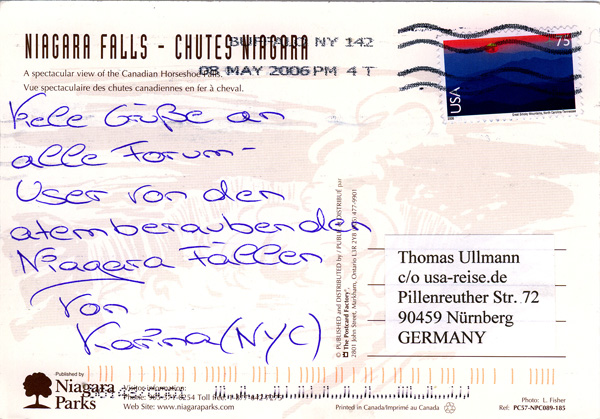 NIAGARA FALLS - CHUTES NIAGARA
BUFFALO NY 142
08 MAY 2006 PM 4 T
A spectacular view of the Canadian Horseshoe Falls.
Vue spectaculaire des chutes canadiennes en fer à cheval.
75
USA
Viele Grüße an
alle Forum-
User von den
atemberaubenden
Niagara Fällen
von
Karina (NYC)
© PUBLISHED and DISTRIBUTED by / PUBLIÉ et DISTRIBUÉ par
The Postcard Factory
2801 John Street, Markham, Ontario L3R 2Y8 (905) 477-9901
Thomas Ullmann
c/o usa-reise.de
Pillenreuther Str. 72
90459 Nürnberg
GERMANY
Published by
Niagara
Parks
Visitor information:
Toll free
Web Site: www.niagaraparks.com
Printed in Canada/Imprimé au Canada
Photo: L. Fisher
Ref: PC57-NPC089-185